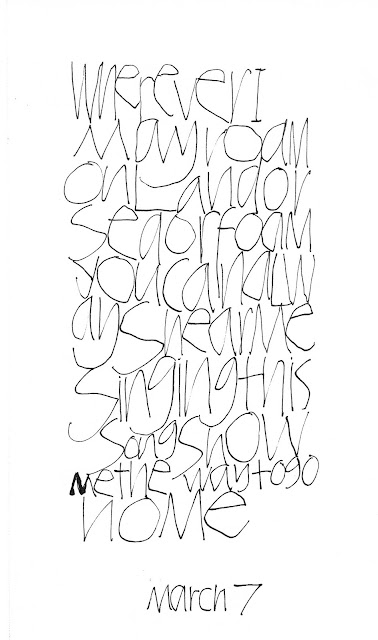 Wherever I
May roam
on Land or
sea or foam
you can alw
ays hear Me
singing this
song show
me the way to go
hoMe
March 7